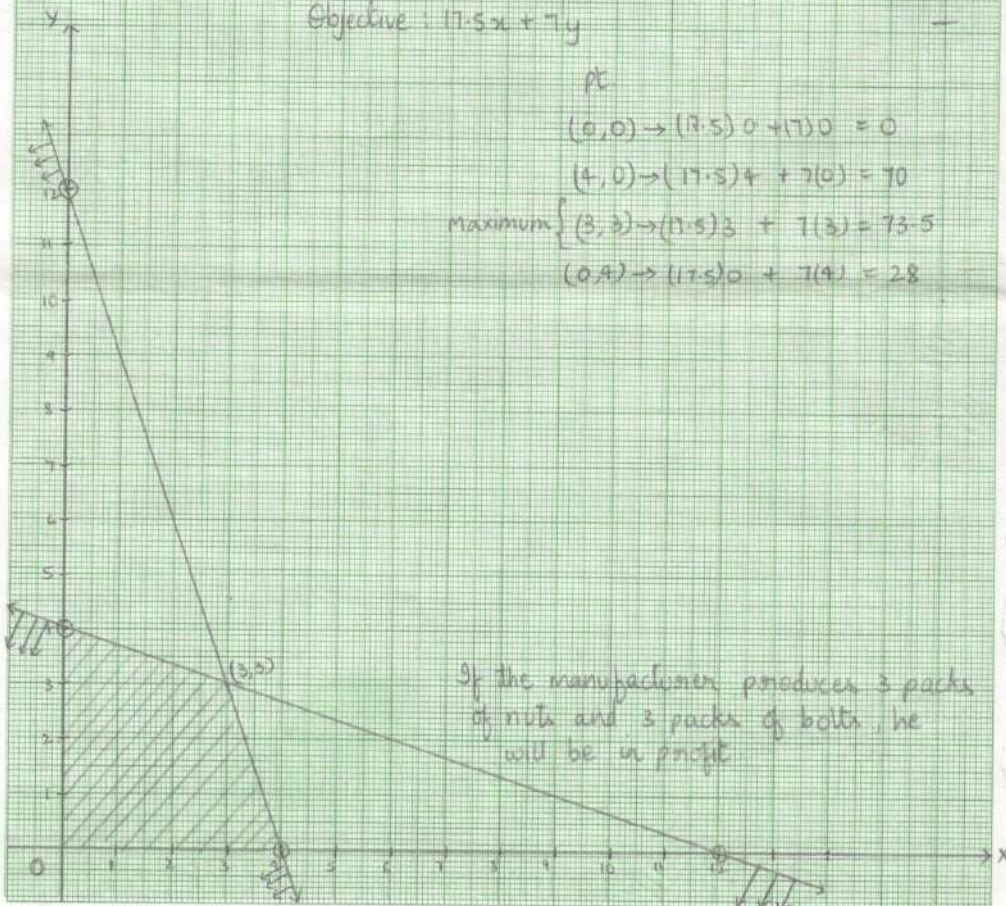 Objective : 17.5x + 7y
pt
(0,0) → (17.5)0 + (7)0 = 0
(4,0) → (17.5)4 + 7(0) = 70
maximum { (3,3) → (17.5)3 + 7(3) = 73.5
(0,4) → (17.5)0 + 7(4) = 28
Y
12
11
10
9
8
7
6
5
4
3
2
1
(3,3)
If the manufacturer produces 3 packs
of nuts and 3 packs of bolts, he
will be in profit
O 1 2 3 4 5 6 7 8 9 10 11 12 X